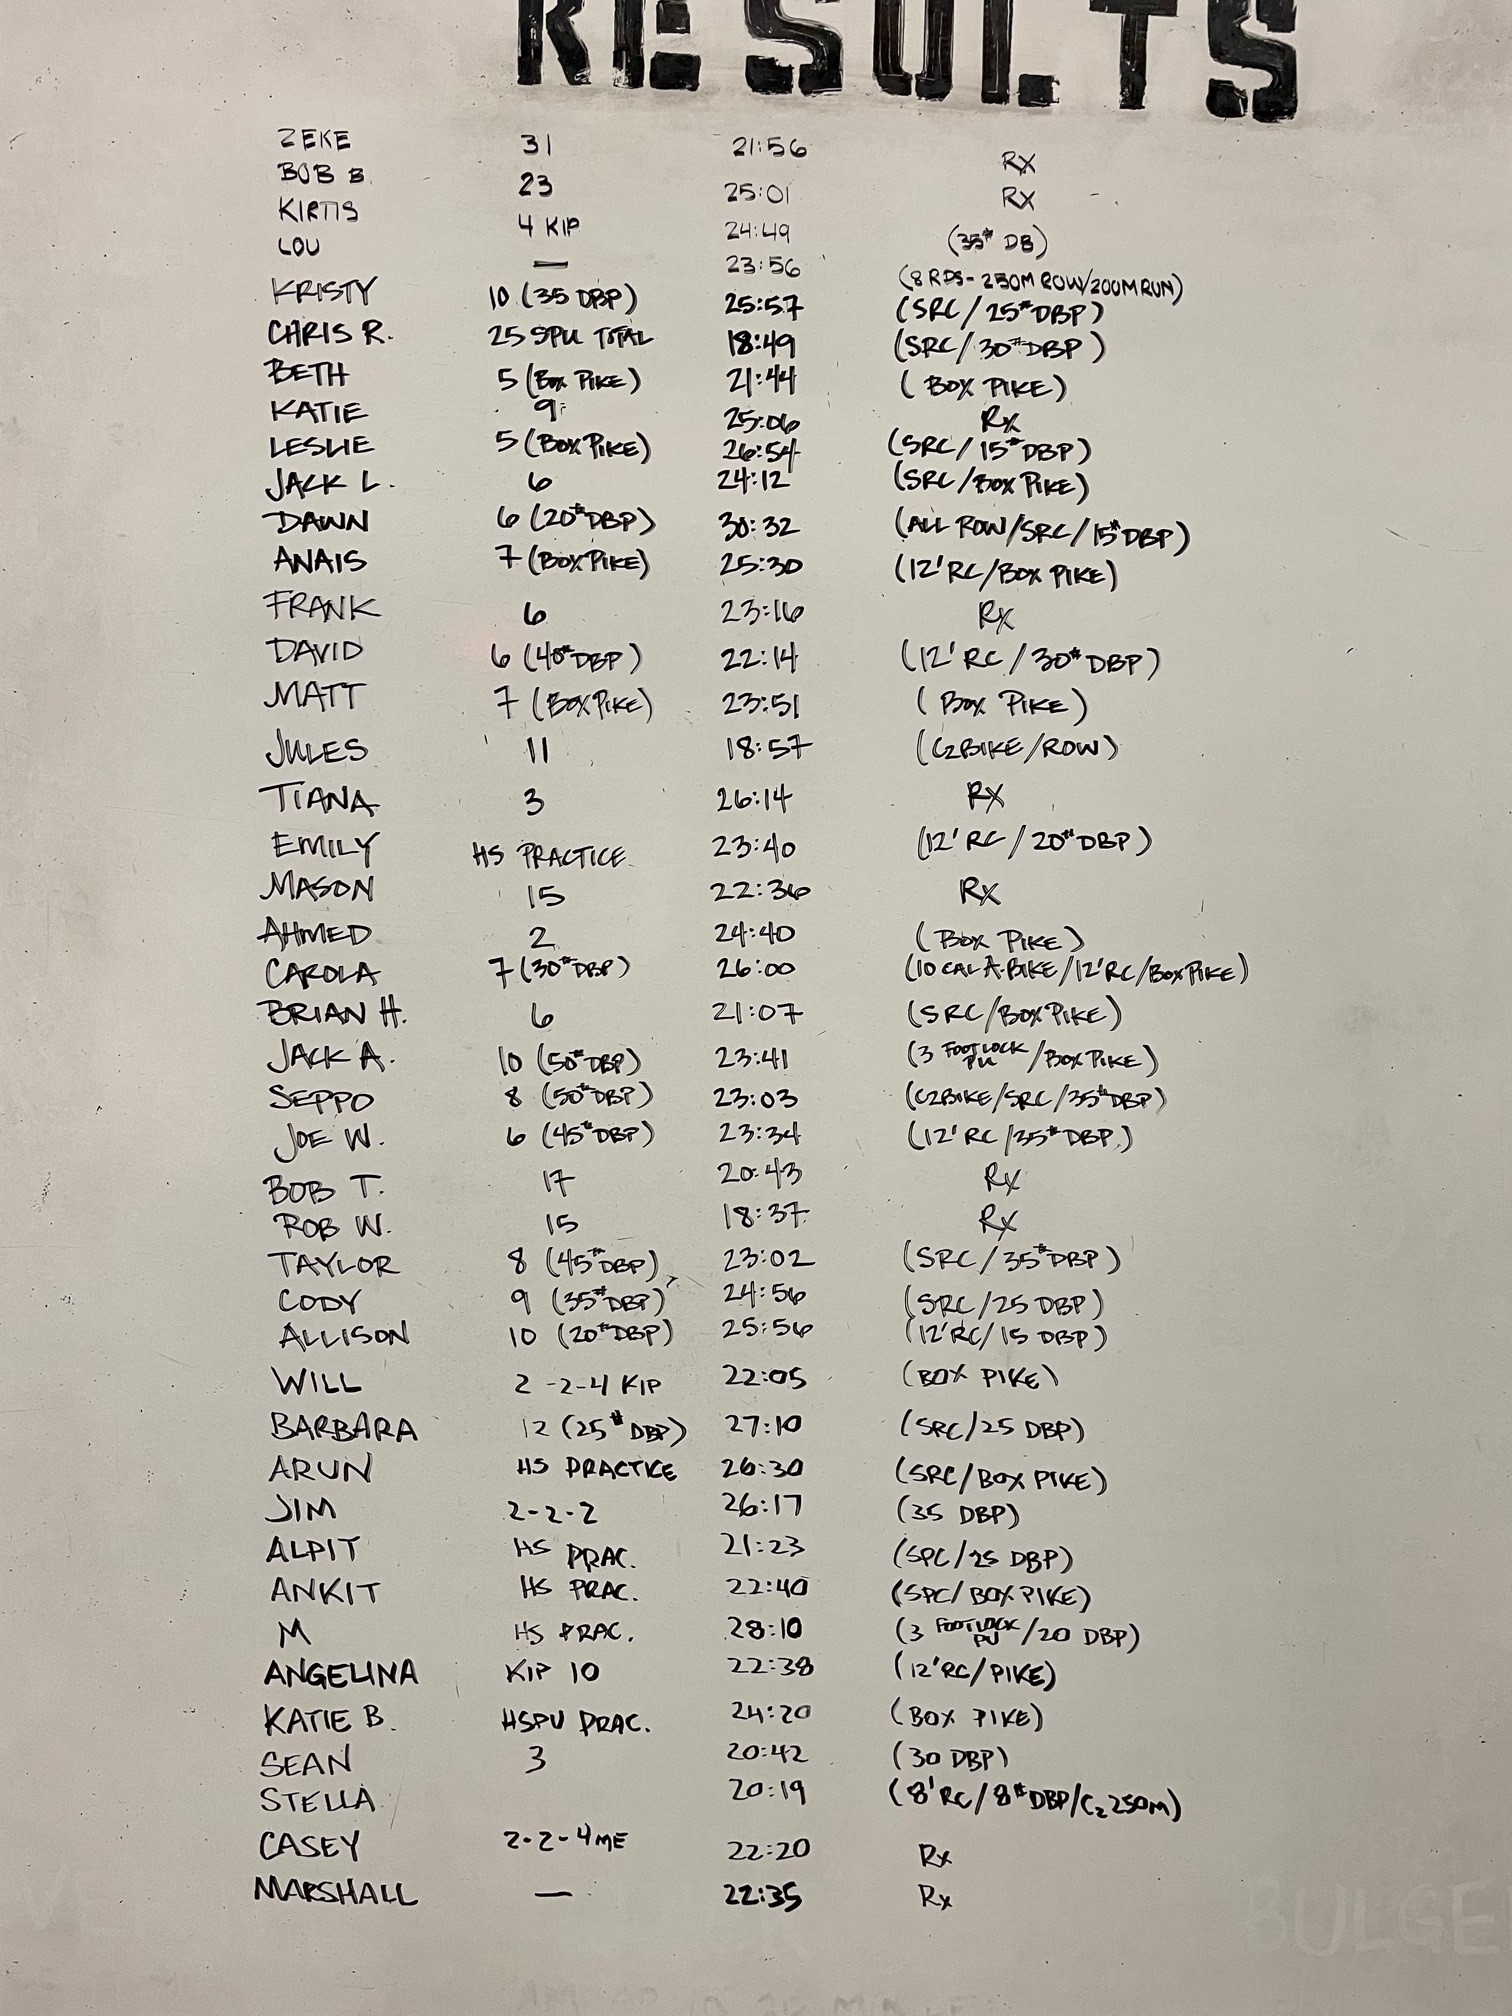 RESULTS
ZEKE 31 21:56 RX
BOB B. 23 25:01 RX
KIRTIS 4 KIP 24:49 (35# DB)
LOU — 23:56 (8 RDS - 250M ROW/200M RUN)
KRISTY 10 (35 DBP) 25:57 (SRC/25# DBP)
CHRIS R. 25 SPU TOTAL 18:49 (SRC/30# DBP)
BETH 5 (BOX PIKE) 21:44 (BOX PIKE)
KATIE 9 25:06 Rx
LESLIE 5 (BOX PIKE) 26:54 (SRC/15# DBP)
JACK L. 6 24:12 (SRC/BOX PIKE)
DAWN 6 (20# DBP) 30:32 (ALL ROW/SRC/15# DBP)
ANAIS 7 (BOX PIKE) 25:30 (12' RC/BOX PIKE)
FRANK 6 23:16 Rx
DAVID 6 (40# DBP) 22:14 (12' RC/30# DBP)
MATT 7 (BOX PIKE) 23:51 (BOX PIKE)
JULES 11 18:57 (C2BIKE/ROW)
TIANA 3 26:14 RX
EMILY HS PRACTICE 23:40 (12' RC/20# DBP)
MASON 15 22:36 Rx
AHMED 2 24:40 (BOX PIKE)
CAROLA 7 (30# DBP) 26:00 (10 CAL A.BIKE/12' RC/BOX PIKE)
BRIAN H. 6 21:07 (SRC/BOX PIKE)
JACK A. 10 (50# DBP) 23:41 (3 FOOT LOCK PU/BOX PIKE)
SEPPO 8 (50# DBP) 23:03 (C2BIKE/SRC/35# DBP)
JOE W. 6 (45# DBP) 23:34 (12' RC/35# DBP)
BOB T. 17 20:43 Rx
ROB W. 15 18:37 Rx
TAYLOR 8 (45# DBP) 23:02 (SRC/35# DBP)
CODY 9 (35# DBP) 24:56 (SRC/25 DBP)
ALLISON 10 (20# DBP) 25:56 (12' RC/15 DBP)
WILL 2-2-4 KIP 22:05 (BOX PIKE)
BARBARA 12 (25# DBP) 27:10 (SRC/25 DBP)
ARUN HS PRACTICE 26:30 (SRC/BOX PIKE)
JIM 2-2-2 26:17 (35 DBP)
ALPIT HS PRAC. 21:23 (SRC/25 DBP)
ANKIT HS PRAC. 22:40 (SRC/BOX PIKE)
M HS PRAC. 28:10 (3 FOOT LOCK PU/20 DBP)
ANGELINA KIP 10 22:38 (12' RC/PIKE)
KATIE B. HSPU PRAC. 24:20 (BOX PIKE)
SEAN 3 20:42 (30 DBP)
STELLA 20:19 (8' RC/8# DBP/C2 250M)
CASEY 2-2-4 ME 22:20 Rx
MARSHALL — 22:35 Rx